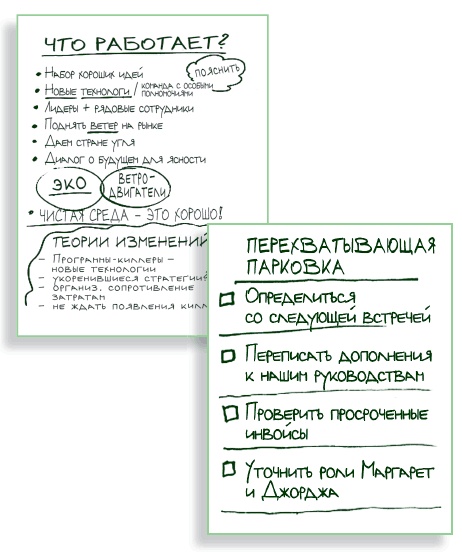 ЧТО РАБОТАЕТ?
• НАБОР ХОРОШИХ ИДЕЙ
ПОЯСНИТЬ
• НОВЫЕ ТЕХНОЛОГИ / КОМАНДА С ОСОБЫМИ
ПОЛНОМОЧИЯМИ
• ЛИДЕРЫ + РЯДОВЫЕ СОТРУДНИКИ
• ПОДНЯТЬ ВЕТЕР НА РЫНКЕ
• ДАЕМ СТРАНЕ УГЛЯ
• ДИАЛОГ О БУДУЩЕМ ДЛЯ ЯСНОСТИ
ЭКО
ВЕТРО-
ДВИГАТЕЛИ
• ЧИСТАЯ СРЕДА – ЭТО ХОРОШО!
ТЕОРИИ ИЗМЕНЕНИЙ
– ПРОГРАММЫ-КИЛЛЕРЫ –
НОВЫЕ ТЕХНОЛОГИИ
– УКОРЕНИВШИЕСЯ СТРАТЕГИИ
– ОРГАНИЗ. СОПРОТИВЛЕНИЕ
ЗАТРАТАМ
– НЕ ЖДАТЬ ПОЯВЛЕНИЯ
ПЕРЕХВАТЫВАЮЩАЯ
ПАРКОВКА
ОПРЕДЕЛИТЬСЯ
СО СЛЕДУЮЩЕЙ ВСТРЕЧЕЙ
ПЕРЕПИСАТЬ ДОПОЛНЕНИЯ
К НАШИМ РУКОВОДСТВАМ
ПРОВЕРИТЬ ПРОСРОЧЕННЫЕ
ИНВОЙСЫ
УТОЧНИТЬ РОЛИ МАРГАРЕТ
И ДЖОРДЖА